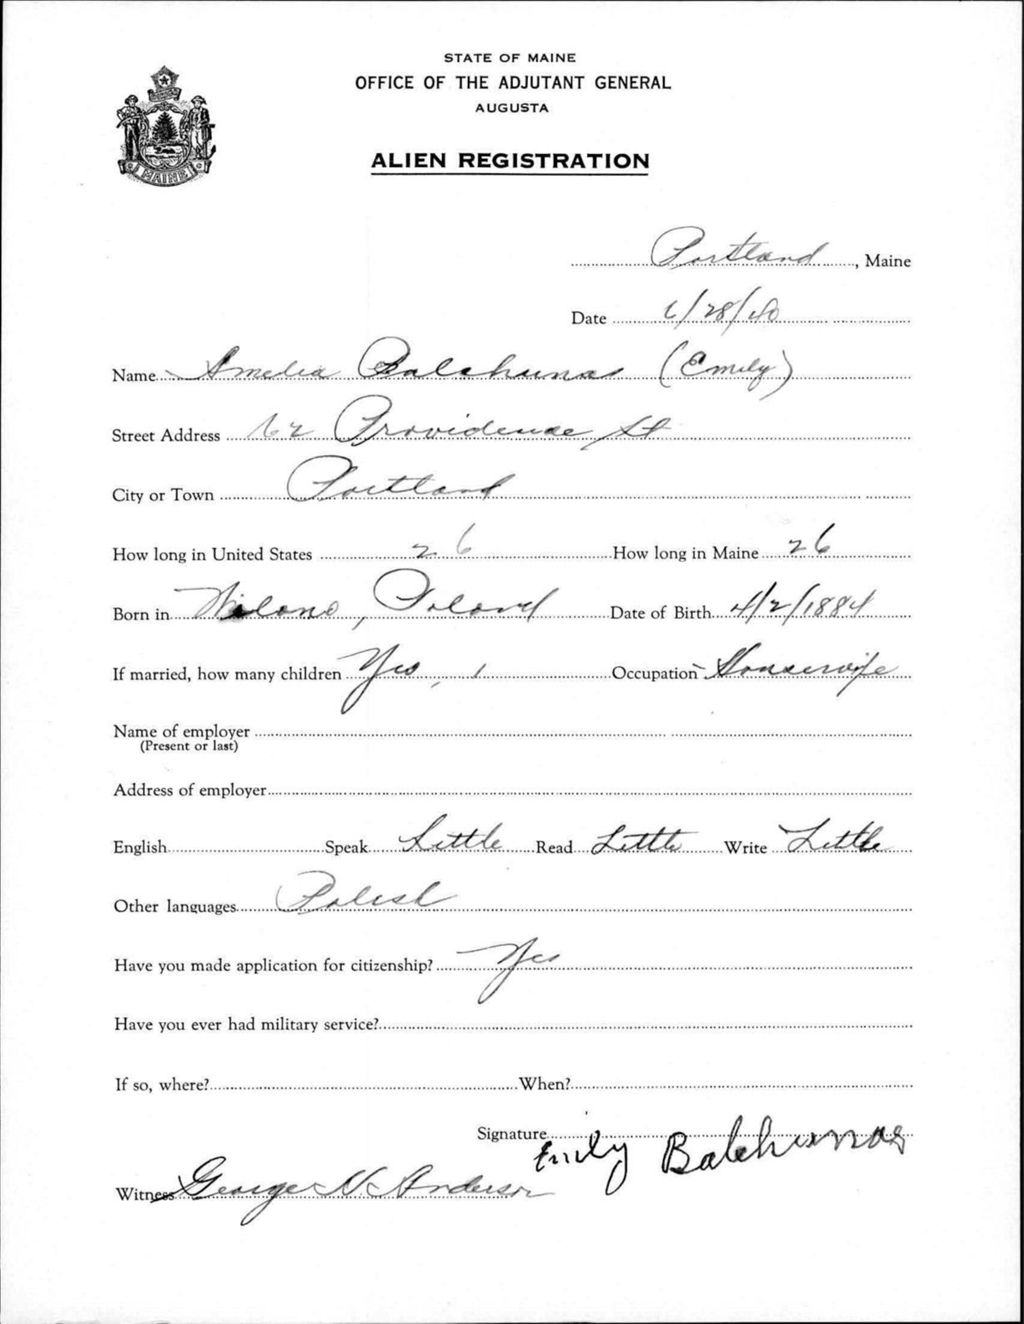 STATE OF MAINE
OFFICE OF THE ADJUTANT GENERAL
AUGUSTA
ALIEN REGISTRATION
MAINE
Portland, Maine
Date 6/28/40
Name Amelia Balchunas (Emily)
Street Address 62 Providence St
City or Town Portland
How long in United States 26 How long in Maine 26
Born in Wilano, Poland Date of Birth 4/2/1884
If married, how many children Yes, 1 Occupation Housewife
Name of employer
(Present or last)
Address of employer
English Speak Little Read Little Write Little
Other languages Polish
Have you made application for citizenship? Yes
Have you ever had military service?
If so, where? When?
Signature Emily Balchunas
Witness George N. Anderson